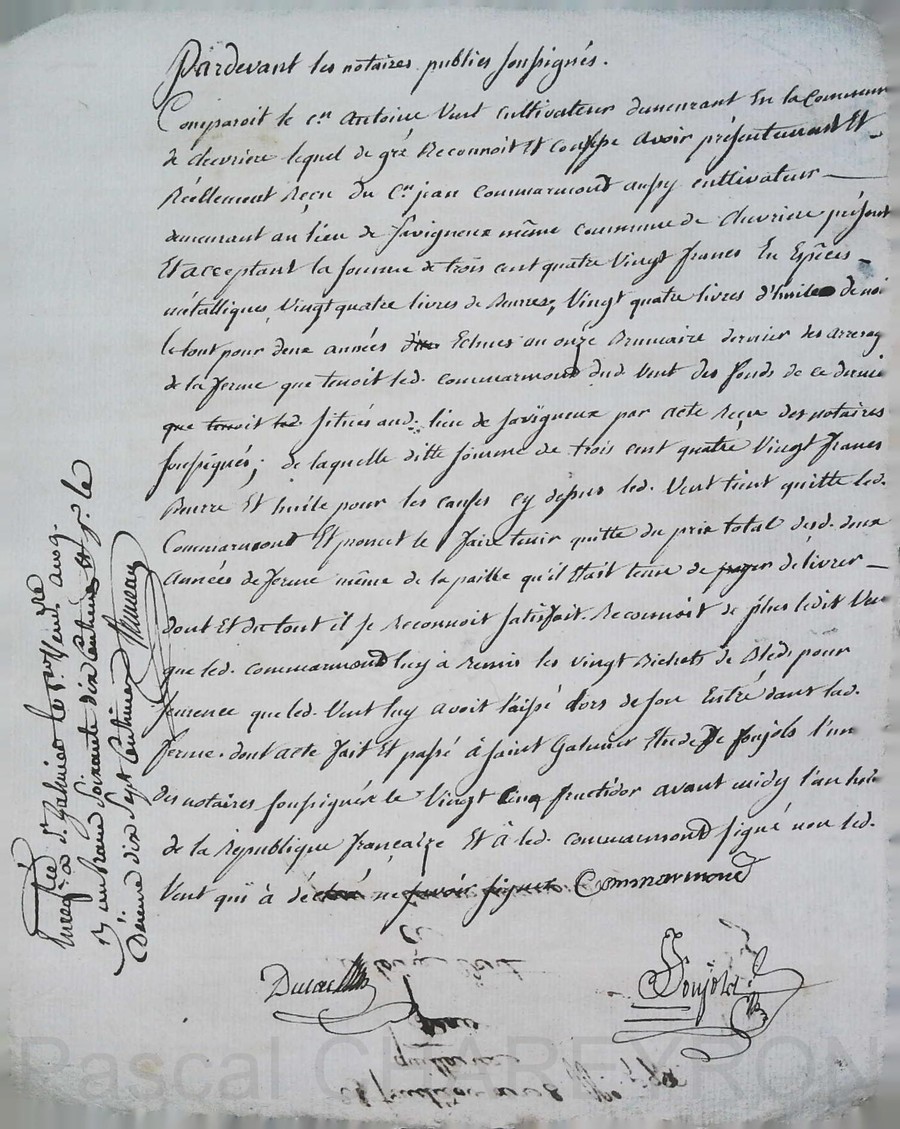 Pardevant les notaires publics soussignés.
Comparoit le c.en Antoine Vent cultivateur demeurant En la Commune
de chevriere lequel de gré Reconnoit Et confesse avoir présentement Et
Réellement Reçu du C.en jean Commarmond aussy cultivateur
demeurant au lieu de Savigneux même commune de chevriere présent
Et acceptant la somme de trois cent quatre Vingt francs En Espèces
métalliques, Vingt quatre livres de Beurre, Vingt quatre livres d'huile de noi
le tout pour deux années Echues au onze Brumaire dernier des arrerag
de la ferme que tenoit led. commarmond dud. Vent des fonds de ce dernie
que tenoit led situés aud. lieu de Savigneux par acte Reçu des notaires
soussignés; de laquelle ditte somme de trois cent quatre Vingt francs
Beurre Et huile pour les causes cy dessus led. Vent tient quitte led.
Commarmond Et promet le faire tenir quitte du prix total desd. deux
Années de ferme même de la paille qu'il Etait tenu de payer délivrer
dont Et du tout il se Reconnoit Satisfait. Reconnoit de plus ledit Ven
que led. commarmond luy à Remis les vingt Bichets de Bled pour
semence que led. Vent luy avoit laissé lors de son Entré dans lad.
ferme. dont acte fait Et passé à Saint Galmier Etude de Soujols l'un
des notaires soussignés le Vingt Cinq fructidor avant midy l'an huit
de la République française Et à led. commarmond signé non led.
Vent qui à déclaré ne savoir signer Commarmond
Soujols
Enregistrée à St. Galmier le
un franc Soixante dix Centimes
Dixieme dix Sept Centimes